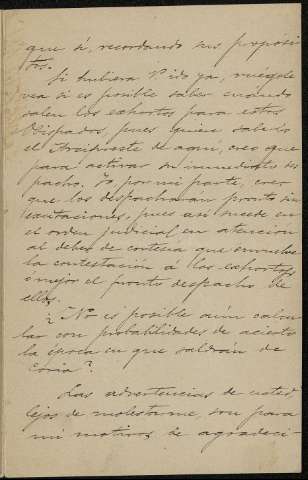 que sí, recordando sus propósi
tos.
Si hubiera V. ido ya, ruégole
vea si es posible saber cuándo
salen los exhortos para estos
Obispados, pues quiere saberlo
el Arcipreste de aquí, creo que
para activar su inmediato des
pacho. Yo por mi parte, creo
que los despacharan pronto sin
excitaciones, pues así sucede en
el orden judicial en atención
al deber de cortesía que envuelve
la contestación a los exhortos
ó mejor el pronto despacho de
ellos.
¿No es posible aún calcu
lar con probabilidades de acierto
la época en que saldrán de
Coria?
Las advertencias de usted,
lejos de molestarme, son para
mi motivos de agradeci-